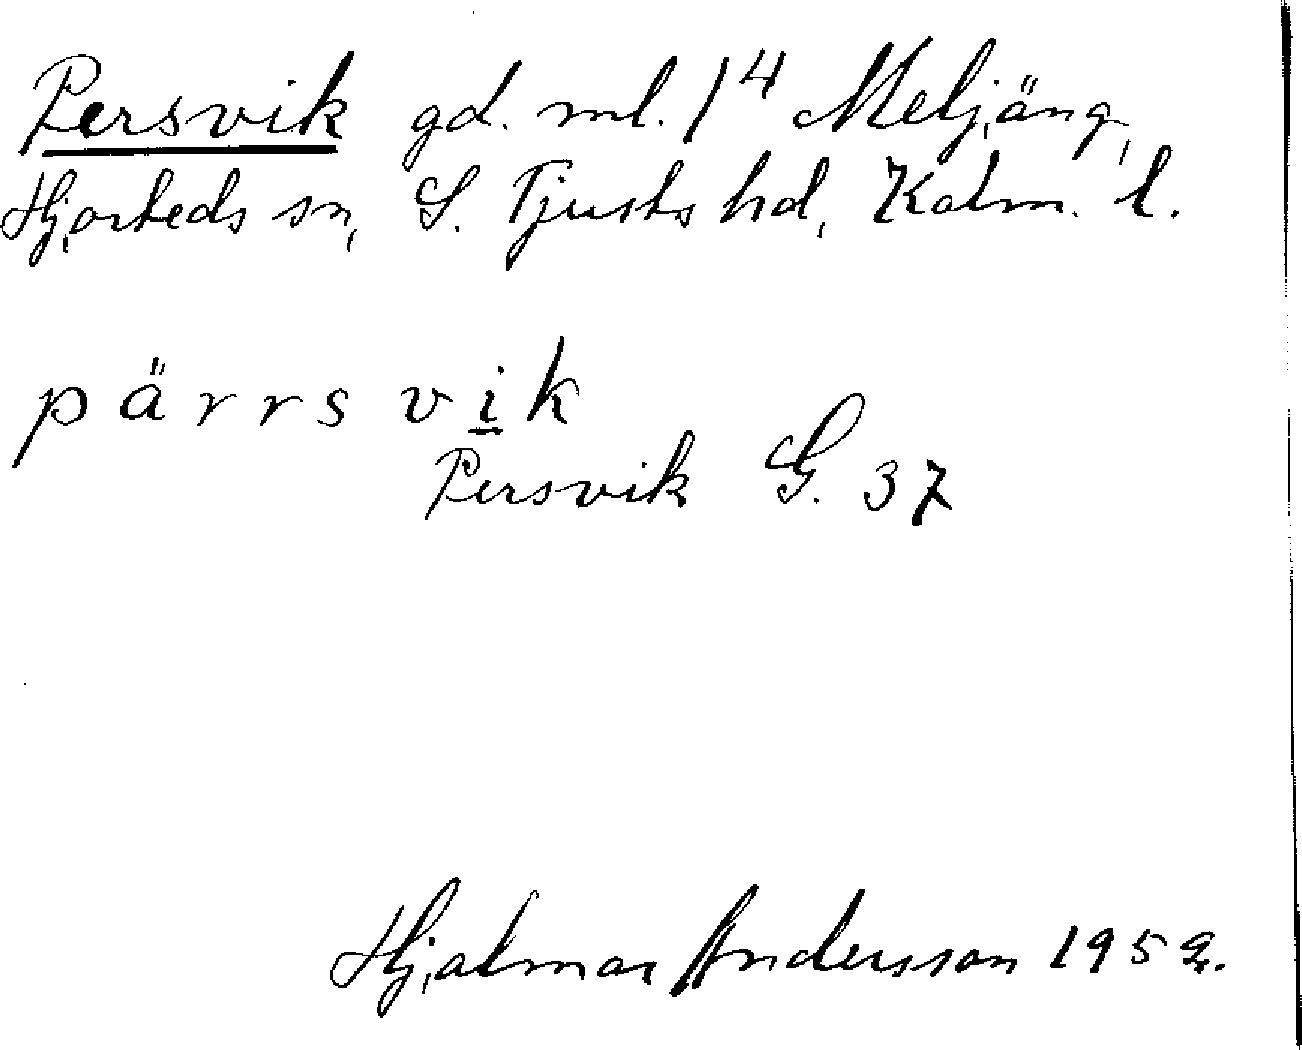 Persvik gd. ml. 1⁴ Meljäng,
Hjorteds sn, S. Tjusts hd, Kalm. l.
pärrsvik
Persvik G. 37
Hjalmar Andersson 1952.